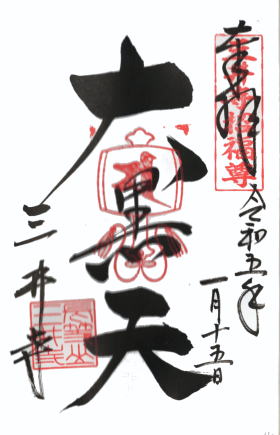 奉拝
令和五年
一月十五日
大黒天
三井寺